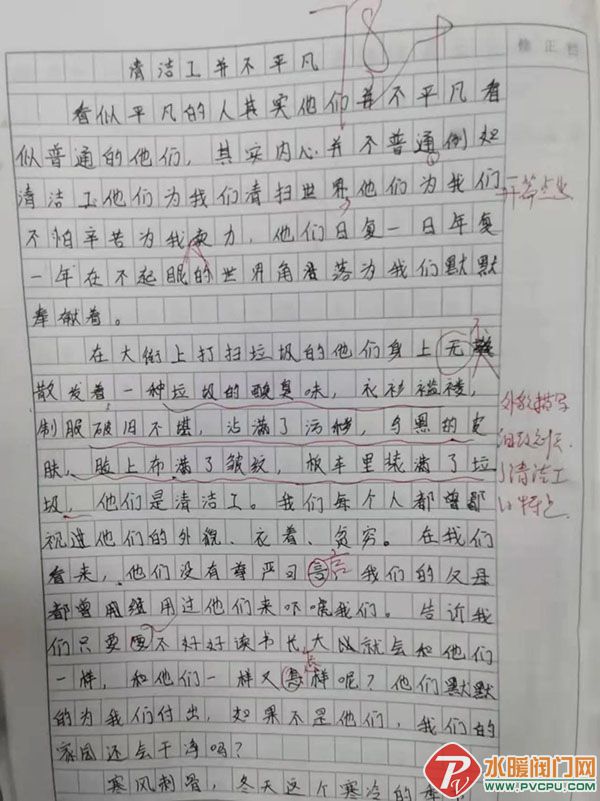 78
修正栏
清洁工并不平凡
看似平凡的人其实他们并不平凡看
似普通的他们，其实内心并不普通例如
清洁工他们为我们清扫世界他们为我们
开篇点业
不怕辛苦为我卖力，他们日复一日年复
一年在不起眼的世界角落为我们默默
奉献着。
在大街上打扫垃圾的他们身上无
散发着一种垃圾的酸臭味，衣衫褴褛，
外貌描写
制服破旧不堪，沾满了污秽，乌黑的皮
肤，脸上布满了皱纹，板车里装满了垃
了清洁工
圾，他们是清洁工。我们每个人都曾鄙
的特点
视过他们的外貌、衣着、贫穷。在我们
看来，他们没有尊严可言 我们的父母
都曾用过他们来吓唬我们。告诉我
们只要不好好读书长大以就会和他们
一样，和他们一样又怎样呢？他们默默
的为我们付出，如果不是他们，我们的
家园还会干净吗？
寒风刺骨，冬天这个寒冷的季
水暖阀门网
WWW.PVCPU.COM